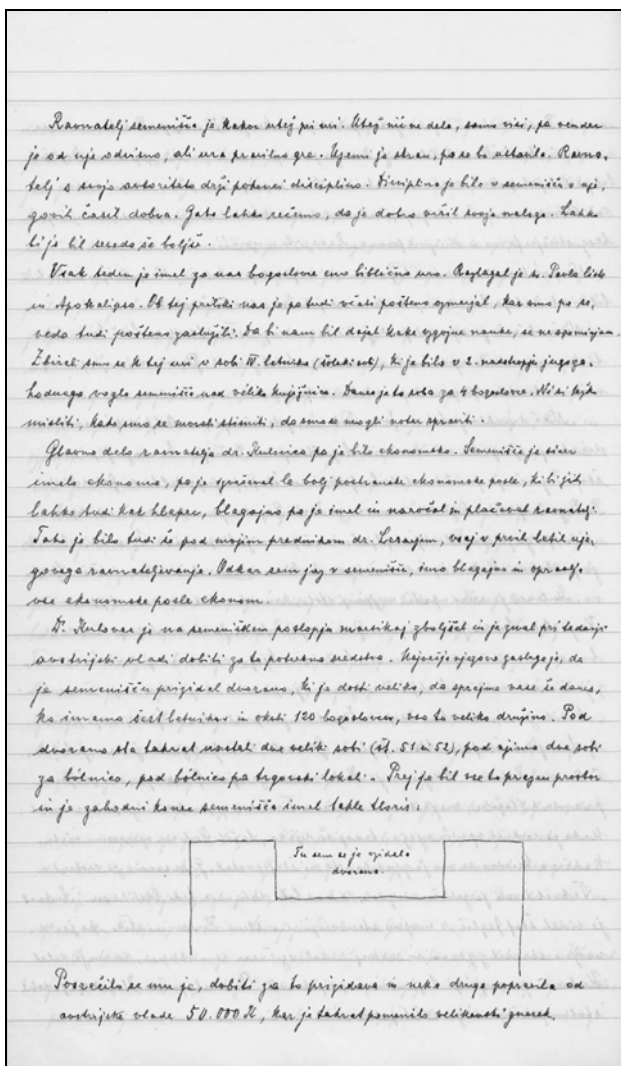 Ravnatelj semenišča je kakor utež pri uri. Utež nič ne dela, samo visi, pa vendar
je od nje odvisno, ali ura pravilno gre. Vzemi jo stran, pa se bo ustavila. Ravna-
telj s svojo avtoriteto drži potrebno disciplino. Disciplina je bila v semenišču v nje-
govih časih dobra. Zato lahko rečemo, da je dobro vršil svojo nalogo. Lahko
bi jo bil seveda še boljše.
Vsak teden je imel za nas bogoslovce eno biblično uro. Razlagal je sv. Pavla liste
in Apokalipso. Ob tej priliki nas je pa tudi včasi pošteno ozmerjal, kar smo pa se-
veda tudi pošteno zaslužili. Da bi nam bil dajal kake vzgojne nauke, se ne spominjam.
Zbirali smo se k tej uri v sobi IV. letnika (šolski sobi), ki je bila v 2. nadstropju jugoza-
hodnega vogla semenišča nad veliko knjižnico. Danes je to soba za 4 bogoslovce. Ni si
misliti, kako smo se morali stisniti, da smo se mogli noter spraviti.
Glavno delo ravnatelja dr. Kulovica pa je bilo ekonomsko. Semenišče je sicer
imelo ekonoma, pa je opravljal le bolj postranske ekonomske posle, ki bi jih
lahko tudi kak hlapec, blagajno pa je imel in naročal in plačeval ravnatelj.
Tako je bilo tudi še pod mojim prednikom dr. Lesarjem, vsaj v prvih letih nje-
govega ravnateljevanja. Odkar sem jaz v semenišču, ima blagajno in opravlja
vse ekonomske posle ekonom.
Dr. Kulovec je na semeniškem poslopju marsikaj zboljšal in je znal pri tedanji
avstrijski vladi dobiti za to potrebna sredstva. Največja njegova zasluga je, da
je semenišču prizidal dvorano, ki je dosti velika, da sprejme vase še danes,
ko imamo šest letnikov in okoli 120 bogoslovcev, vso to veliko družino. Pod
dvorano sta takrat nastali dve veliki sobi (št. 51 in 52), pod njima dve sobi
za bolnico, pod bolnico pa trgovski lokali. Prej je bil ves ta prazen prostor
in je zahodni konec semenišča imel takle tloris:
Tu sem se je zidala
dvorana.
Posrečilo se mu je, dobiti za to prizidavo in neka druga popravila od
avstrijske vlade 50.000 K, kar je takrat pomenilo velikanski znesek.